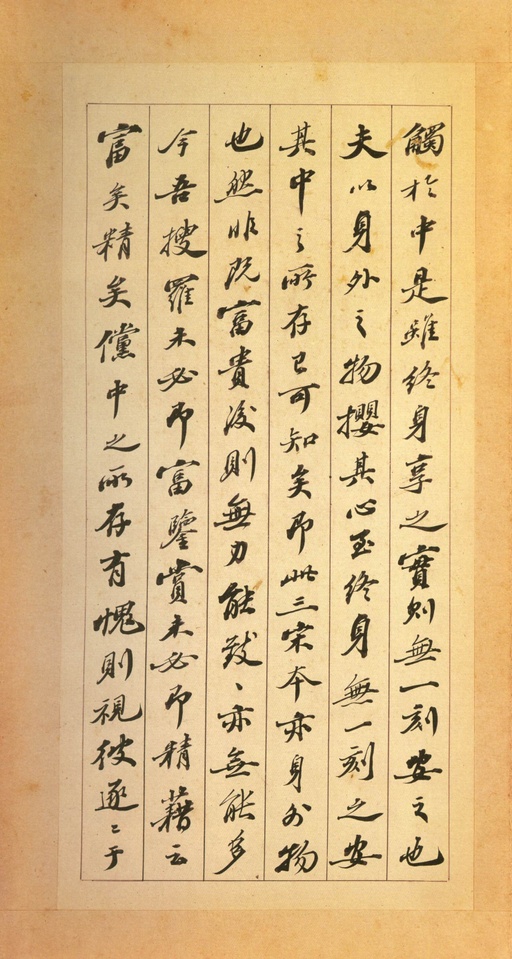 觸於中是雖終身享之實則無一刻安之也
夫以身外之物攖其心至終身無一刻之安
其中之所存已可知矣即此三宋本亦身外物
也然非既富貴後則無力能致、亦無能多
今吾搜羅未必即富鑒賞未必即精藉云
富矣精矣儻中之所存有愧則視彼逐〻于